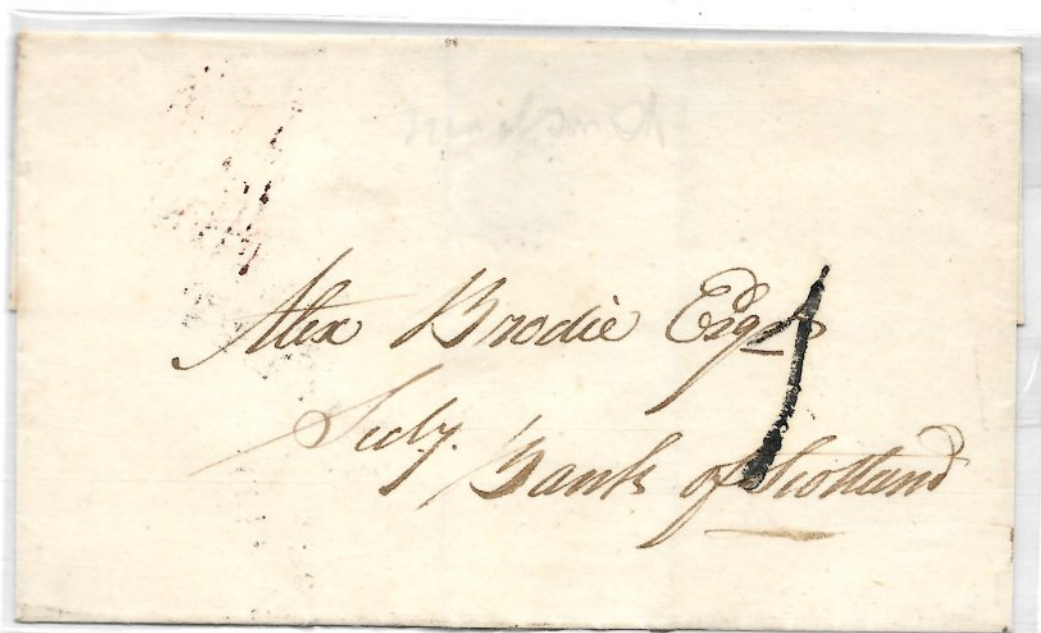 Alex Brodie Esqr
1
Secty. Bank of Scotland